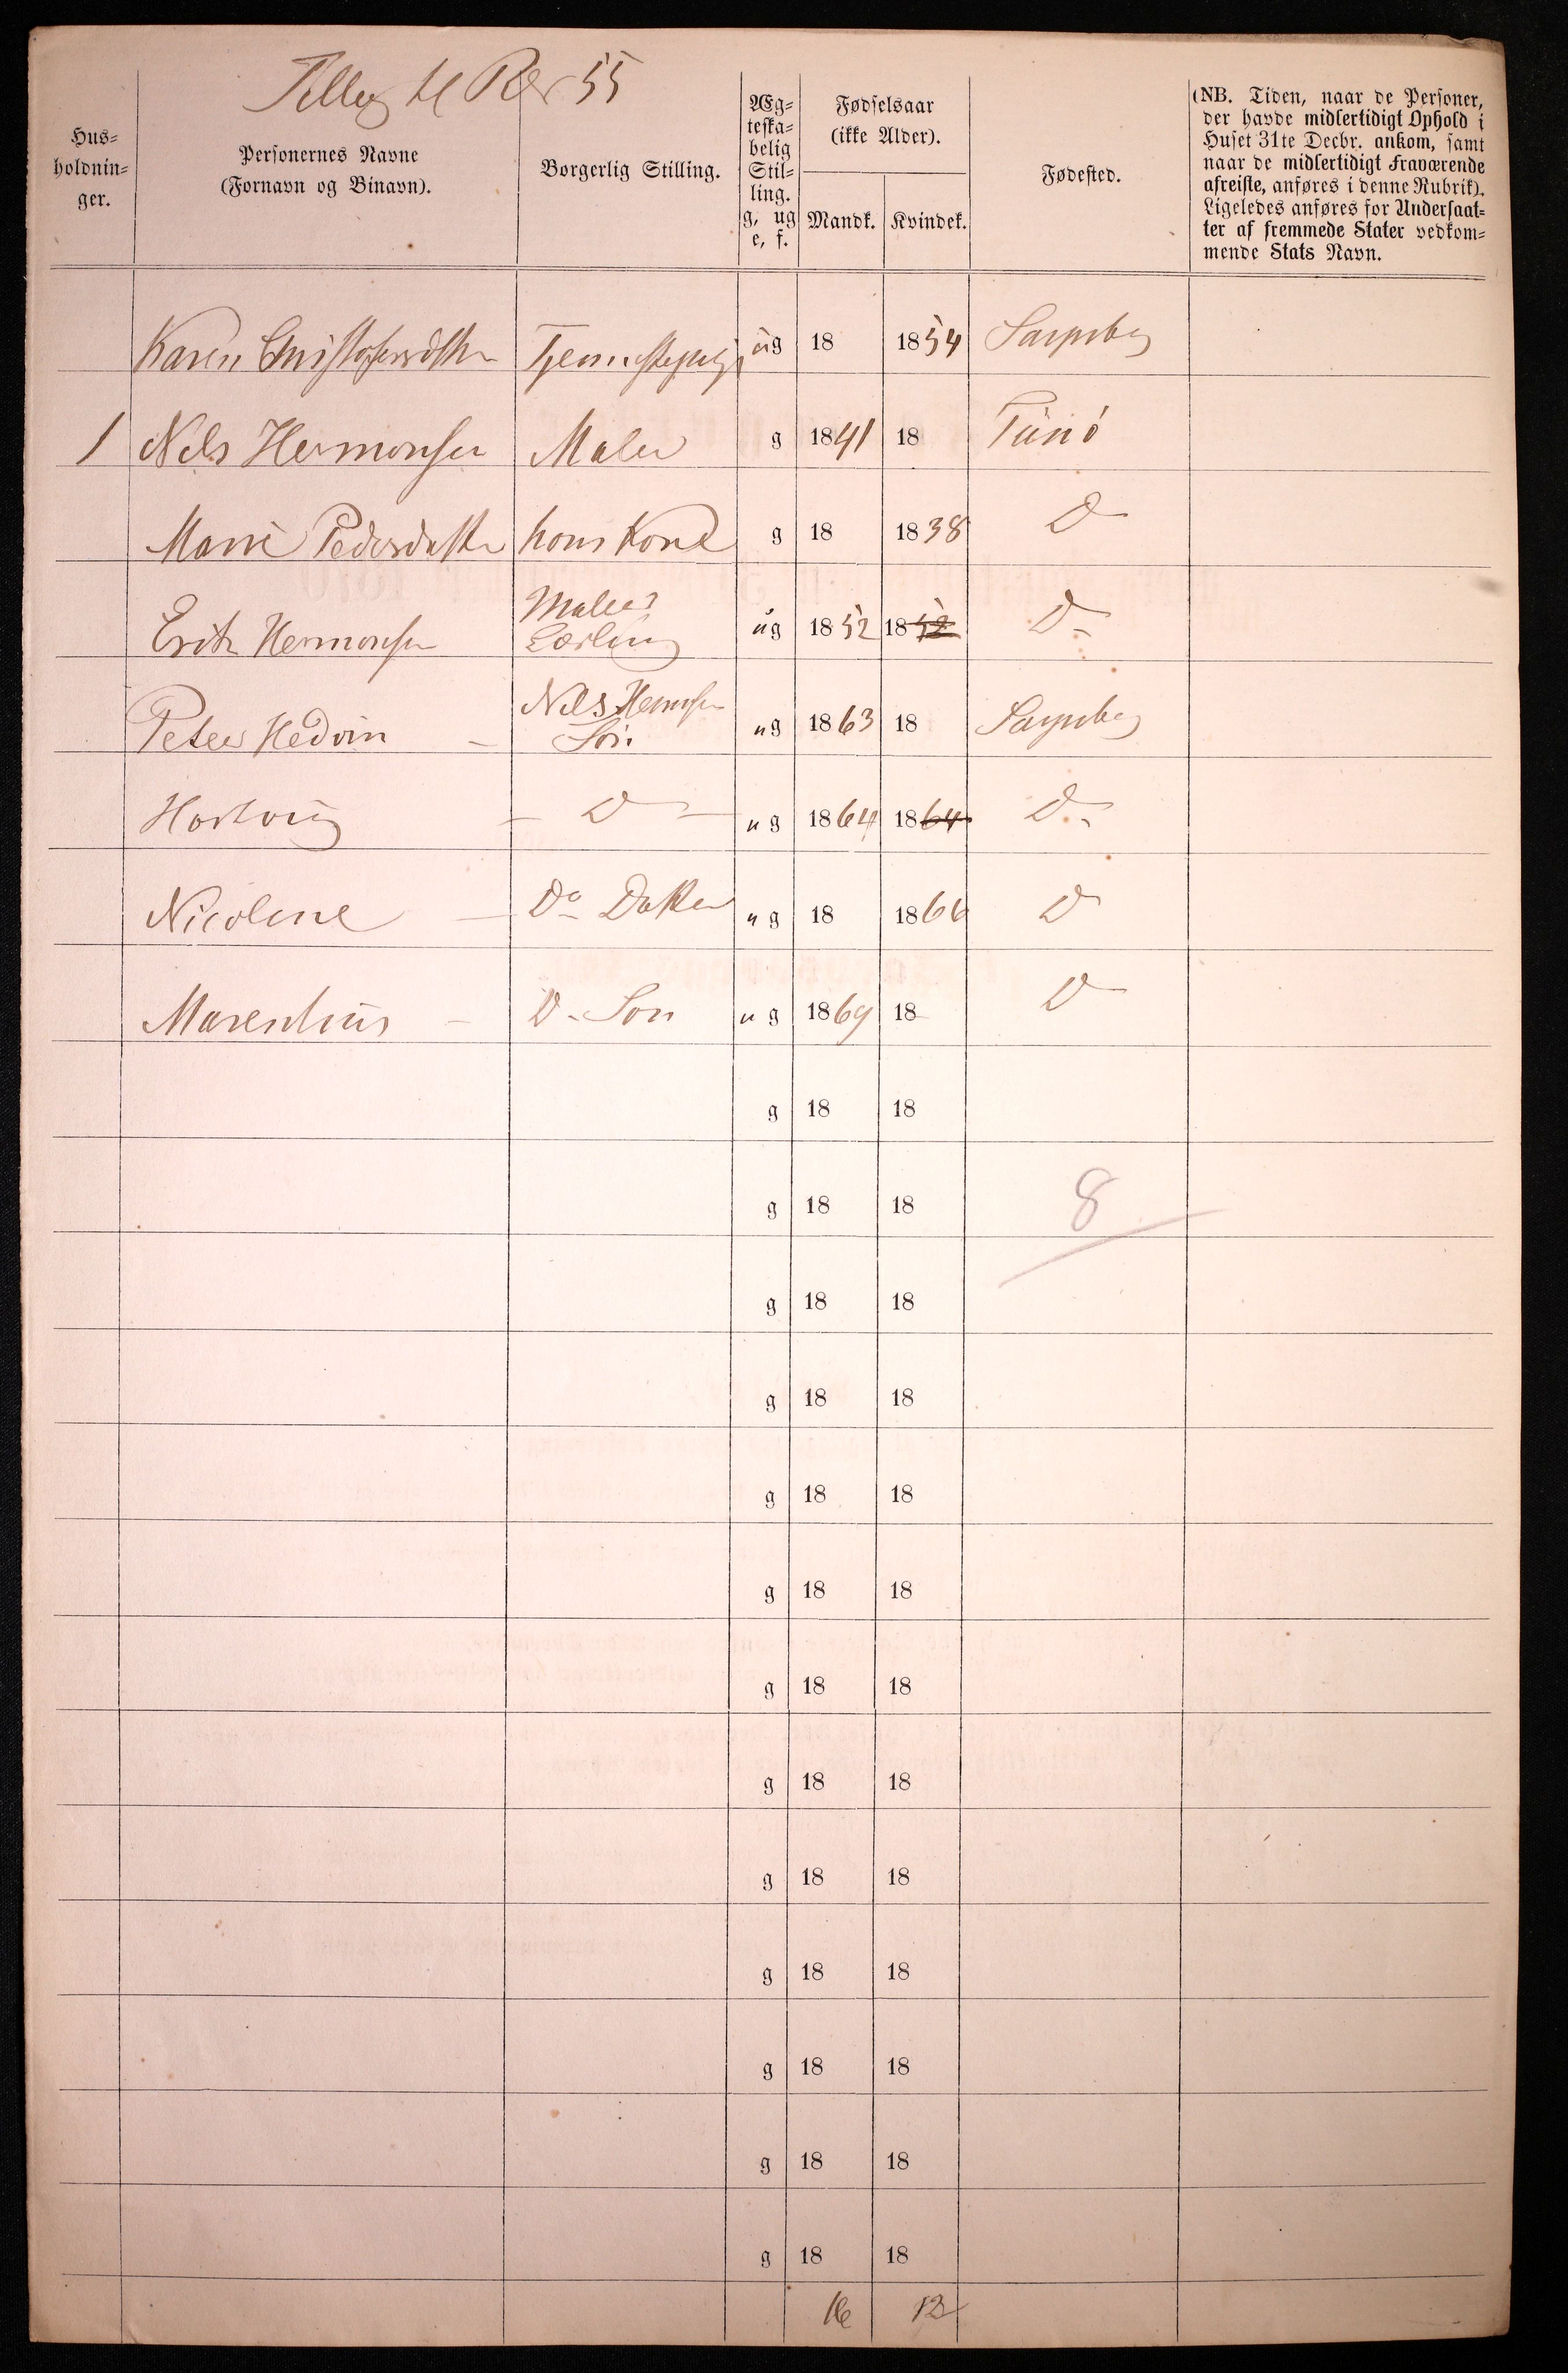 Tillæg til 55
Hus-
holdnin-
ger.
Personernes Navne
(Fornavn og Binavn).
Borgerlig Stilling.
Æg-
teska-
belig
Stil-
ling.
g, ug
e, f.
Fødselsaar
(ikke Alder).
Mandk. Kvindek.
Fødested.
(NB. Tiden, naar de Personer,
der havde midlertidigt Ophold i
Huset 31te Decbr. ankom, samt
naar de midlertidigt Fraværende
afreiste, anføres i denne Rubrik).
Ligeledes anføres for Undersaat-
ter af fremmede Stater vedkom-
mende Stats Navn.
Karen Christofersdtter Tjenestepige ug 18 1854 Sarpsborg
1 Nels Hermonsen Maler g 1841 18 Tunø
Marie Pedersdatter hans Kone g 18 1838 D
Erik Hermonsen Maler Lærling ug 1852 1852 Do
Peter Hedvin – Nels Hermsen Søn ug 1863 18 Sarpsborg
Hartvig – D – ug 1864 1864 Do
Nicoline – Do Datter ug 18 1866 D
Marenhius – D. Søn ug 1869 18 D
g 18 18
g 18 18 8
g 18 18
g 18 18
g 18 18
g 18 18
g 18 18
g 18 18
g 18 18
g 18 18
g 18 18
g 18 18
g 18 18
16 12